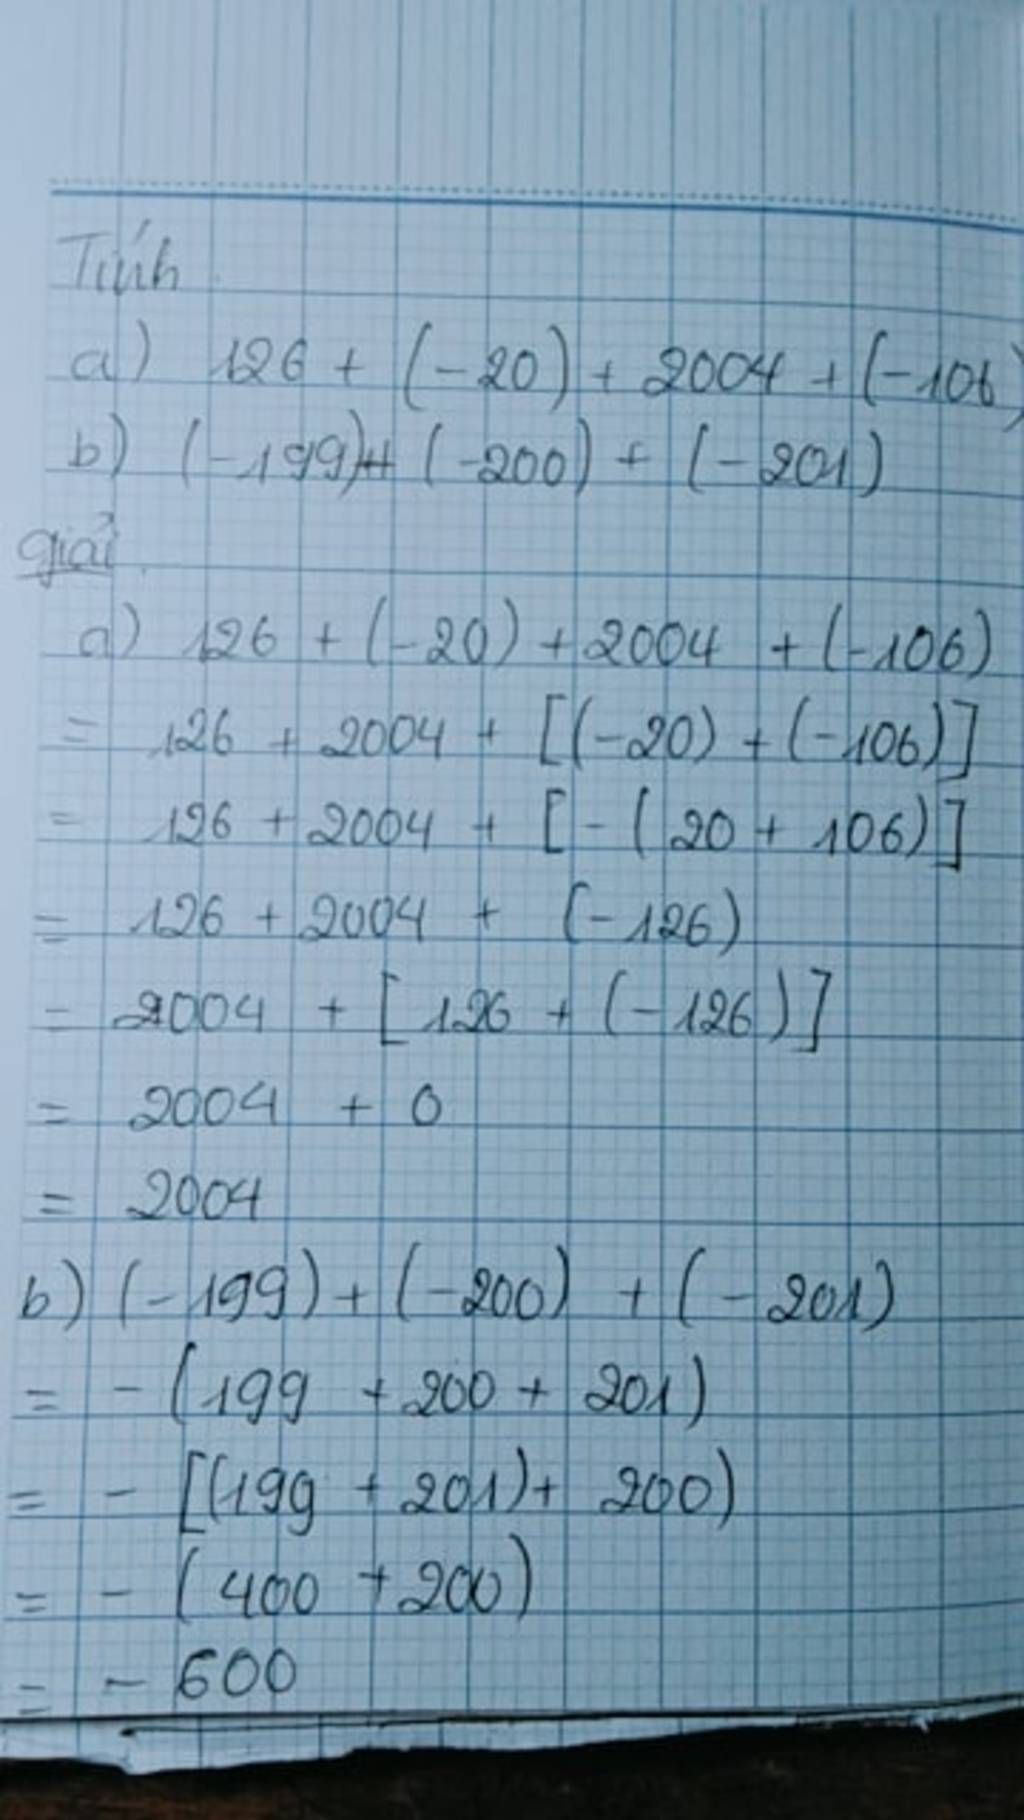 Tính
a) 126 + (-20) + 2004 + (-106)
b) (-199) + (-200) + (-201)
giải
a) 126 + (-20) + 2004 + (-106)
= 126 + 2004 + [(-20) + (-106)]
= 126 + 2004 + [- (20 + 106)]
= 126 + 2004 + (-126)
= 2004 + [126 + (-126)]
= 2004 + 0
= 2004
b) (-199) + (-200) + (-201)
= - (199 + 200 + 201)
= - [(199 + 201) + 200)
= - (400 + 200)
= - 600